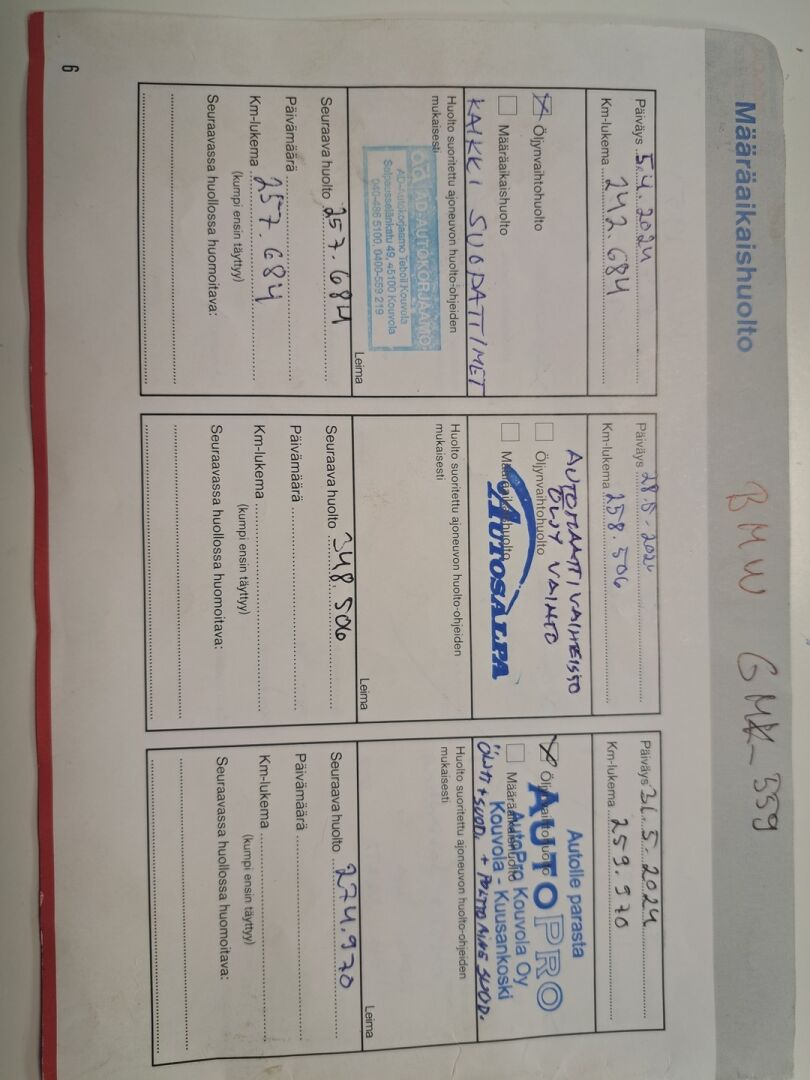 Määräaikaishuolto
BMW GMK-559
Päiväys 5.4.2024
Km-lukema 242.684
Öljynvaihtohuolto
Määräaikaishuolto
KAIKKI SUODATTIMET
Huolto suoritettu ajoneuvon huolto-ohjeiden
mukaisesti
ad AD-AUTOKORJAAMO
AD-Autokorjaamo Tehoili Kouvola
Salpausselänkatu 49, 45100 Kouvola
040-486 5100, 0400-559 219
Leima
Seuraava huolto 257.684
Päivämäärä
Km-lukema 257.684
(kumpi ensin täyttyy)
Seuraavassa huollossa huomoitava:
Päiväys 28.5.2024
Km-lukema 258.506
AUTOMAATTIVAIHTEISTO
ÖLJY VAIHTO
Öljynvaihtohuolto
Määräaikaishuolto
AUTOSALPA
Huolto suoritettu ajoneuvon huolto-ohjeiden
mukaisesti
Leima
Seuraava huolto 348 506
Päivämäärä
Km-lukema
(kumpi ensin täyttyy)
Seuraavassa huollossa huomoitava:
Päiväys 31.5.2024
Km-lukema 259.970
Autolle parasta
AUTOPRO
Öljynvaihtohuolto
Määräaikaishuolto
AutoPro Kouvola Oy
Kouvola - Kuusankoski
ÖLJYT + SUOD. + POLTTOAINE SUOD.
Huolto suoritettu ajoneuvon huolto-ohjeiden
mukaisesti
Leima
Seuraava huolto 274.970
Päivämäärä
Km-lukema
(kumpi ensin täyttyy)
Seuraavassa huollossa huomoitava:
6